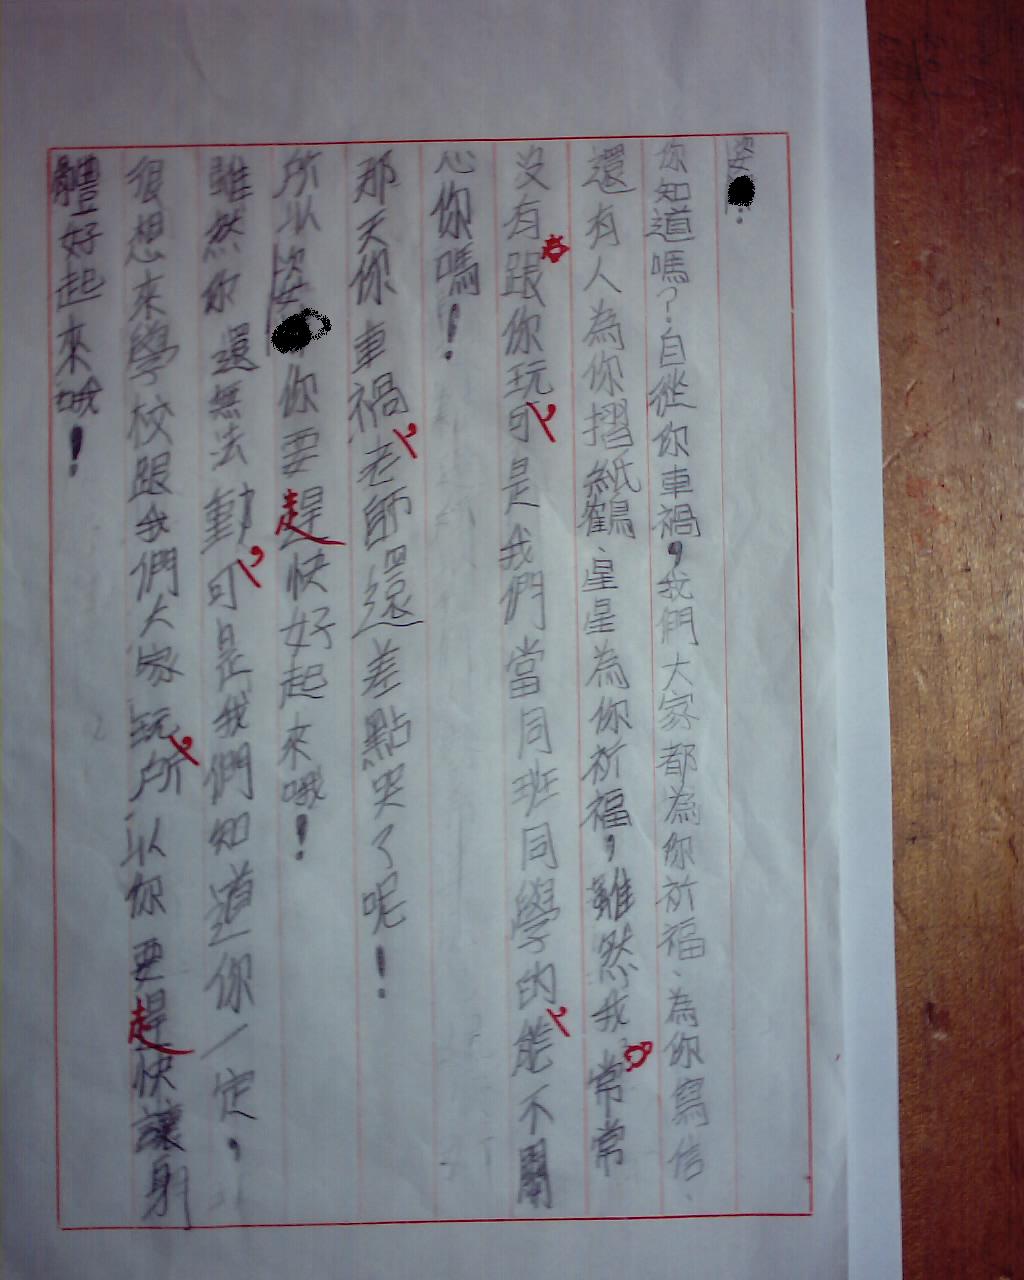 姿:
你知道嗎？自從你車禍，我們大家都為你祈福、為你寫信、
還有人為你摺紙鶴、星星為你祈福，雖然我常常
沒有跟你玩，可是我們當同班同學的，能不關
心你嗎！
那天你車禍，老師還差點哭了呢！
所以姿你要趕快好起來哦！
雖然你還無法動，可是我們知道你一定，
很想來學校跟我們大家玩，所以你要趕快讓身
體好起來哦！